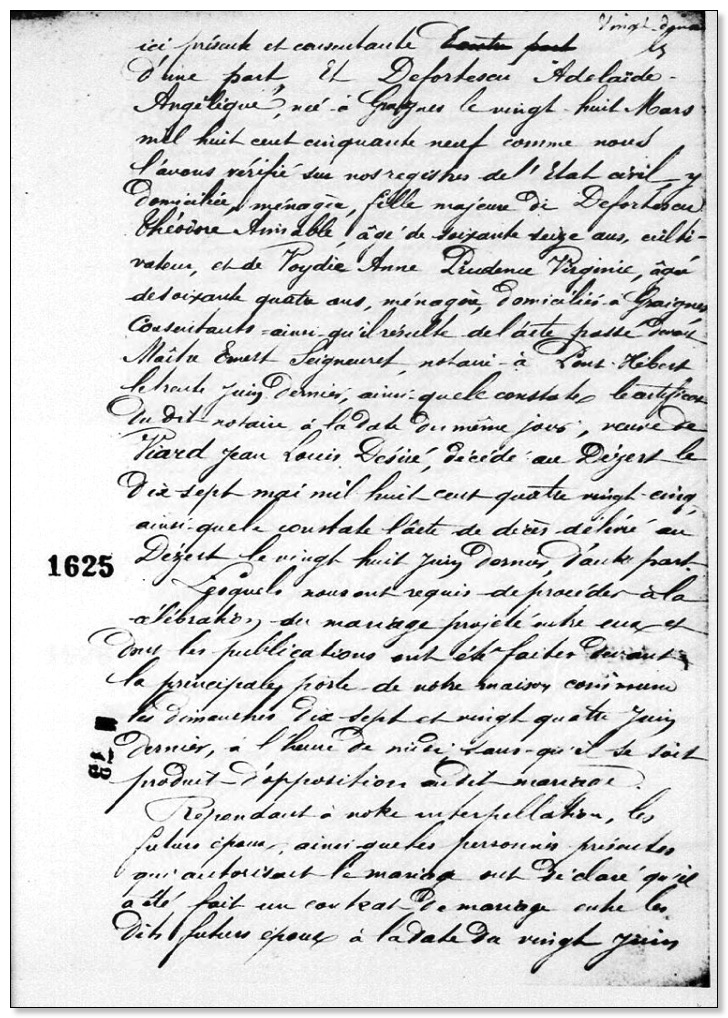 Vingt-
ici présente et consentante
d'une part Et Defortescu Adelaïde-
Angélique, née à Graignes le vingt-huit Mars
mil huit cent cinquante neuf comme nous
l'avons vérifié sur nos registres de l'Etat civil, y
domiciliée, ménagère, fille majeure de Defortescu
Théodore Aimable, âgé de soixante seize ans, culti-
vateur, et de Voydie Anne Prudence Virginie, âgée
de soixante quatre ans, ménagère, domiciliés à Graignes
Consentants ainsi qu'il résulte de l'acte passé devant
Maître Ernest Seigneuret, notaire à Pont-Hébert
le trente Juin dernier, ainsi que le constate le certificat
du dit notaire à la date du même jour, veuve de
Viard Jean Louis Désiré, décédé au Dézert le
dix-sept mai mil huit cent quatre vingt-cinq,
ainsi que le constate l'acte de décès délivré au
1625 Dézert le vingt huit Juin dernier, d'autre part.
Lesquels nous ont requis de procéder à la
célébration du mariage projeté entre eux et
dont les publications ont été faites devant
la principale porte de notre maison commune
les dimanches dix-sept et vingt quatre Juin
dernier, à l'heure de midi, sans qu'il se soit
produit d'opposition audit mariage.
Répondant à notre interpellation, les
futurs époux, ainsi que les personnes présentes
qui autorisent le mariage ont déclaré qu'il
a été fait un contrat de mariage entre les
dits futurs époux à la date du vingt Juin